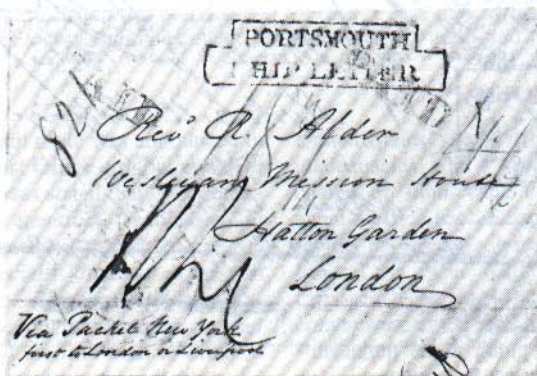 PORTSMOUTH
SHIP LETTER
PAID
821
Revd R. Alder
Wesleyan Mission House
Hatton Garden
London
Via Packet New York
first to London or Liverpool